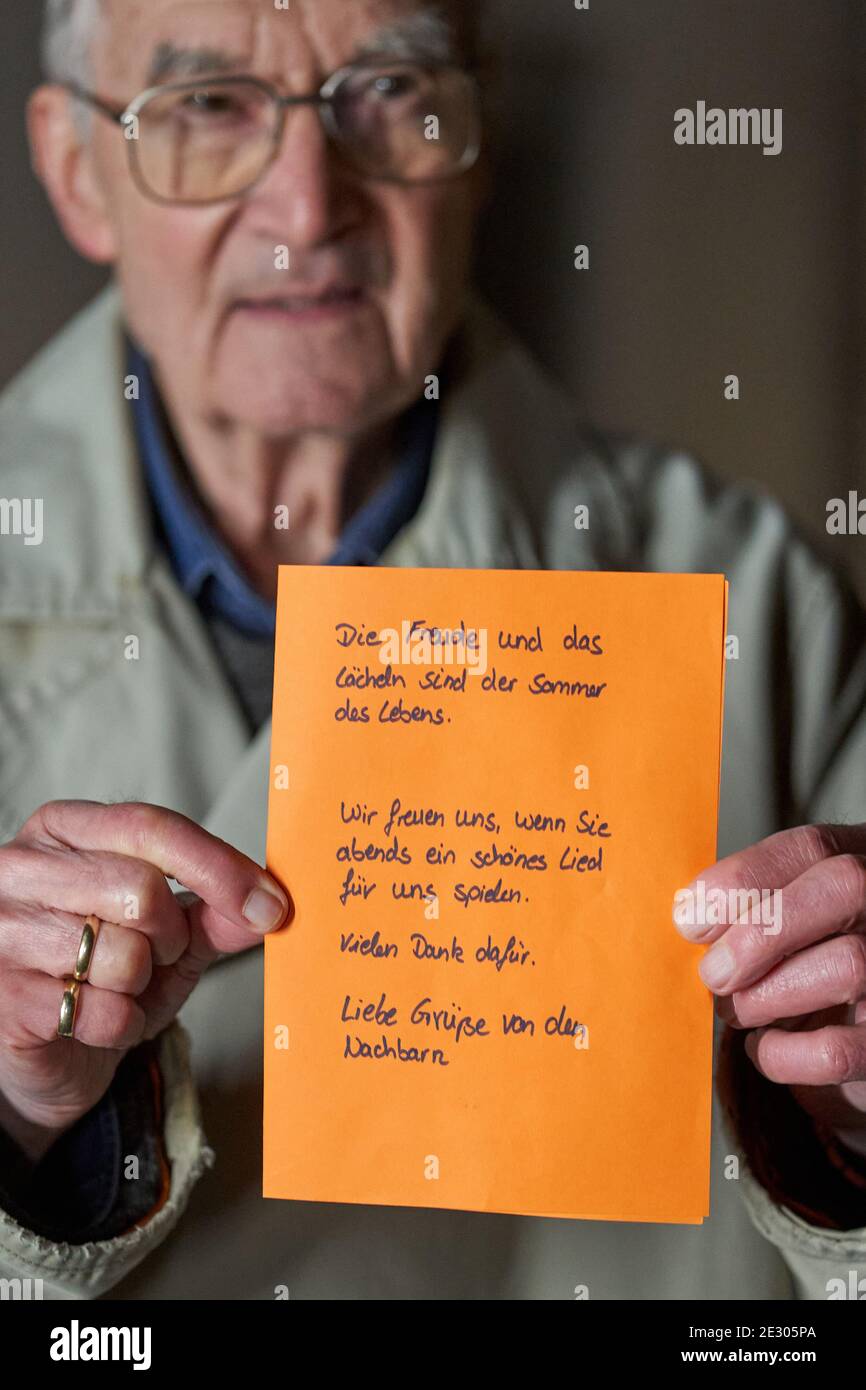 Die Freude und das
Lächeln sind der Sommer
des Lebens.
Wir freuen uns, wenn Sie
abends ein schönes Lied
für uns spielen.
Vielen Dank dafür.
Liebe Grüße von den
Nachbarn
alamy
Image ID: 2E305PA
www.alamy.com